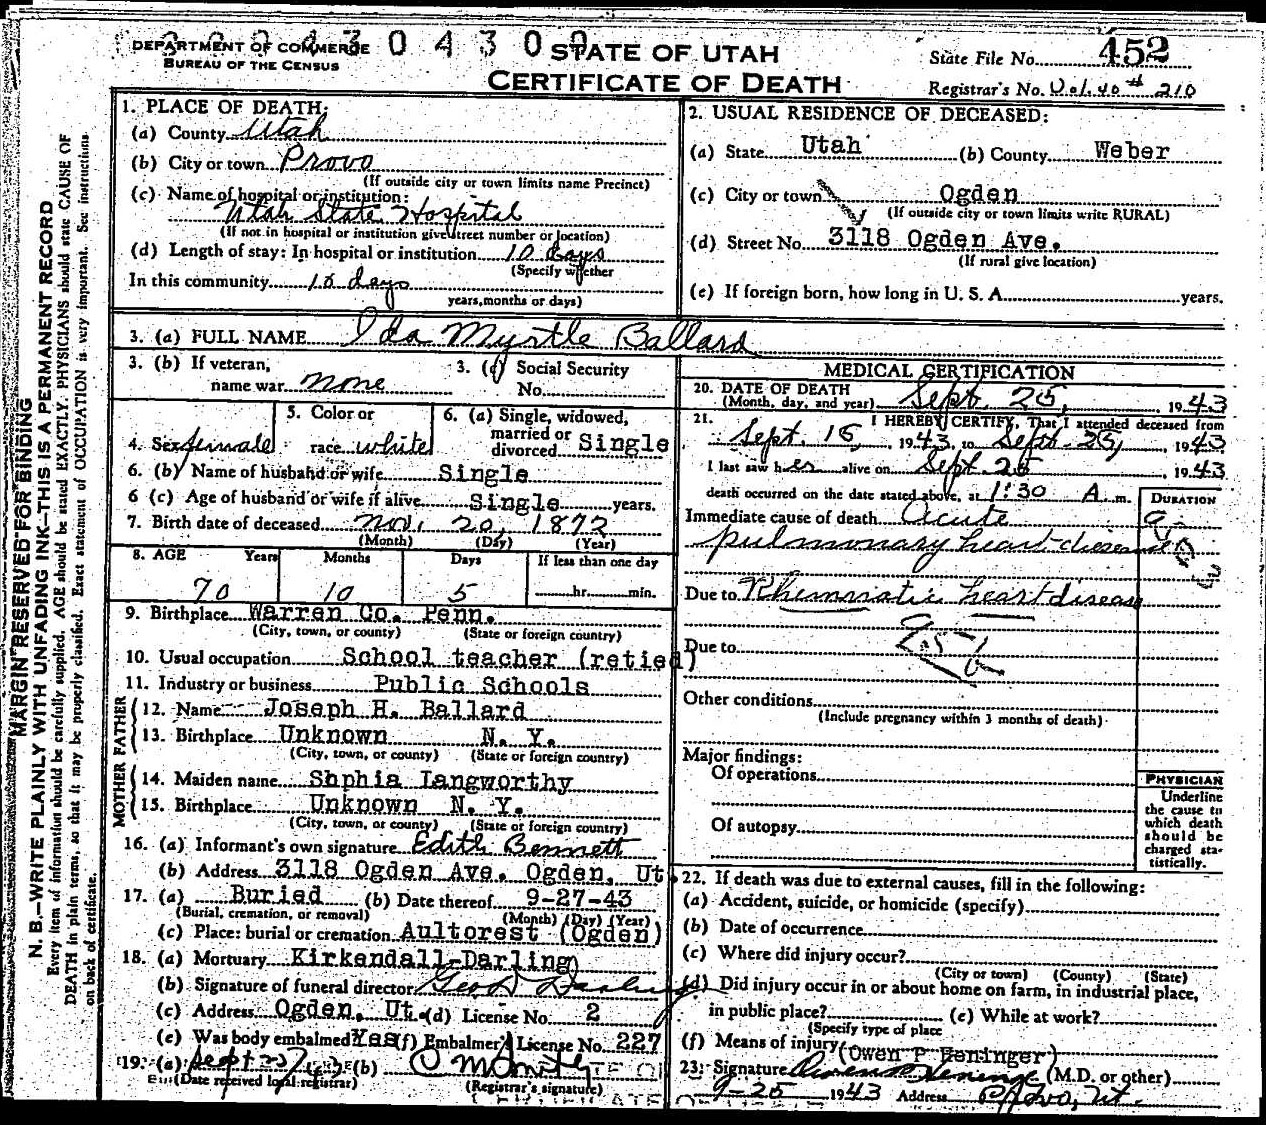 DEPARTMENT OF COMMERCE
BUREAU OF THE CENSUS
0 4 3 0
STATE OF UTAH
CERTIFICATE OF DEATH
State File No. 452
Registrar's No. Vol. 40 # 210
MARGIN RESERVED FOR BINDING
N. B.—WRITE PLAINLY WITH UNFADING INK—THIS IS A PERMANENT RECORD
Every item of information should be carefully supplied. AGE should be stated EXACTLY. PHYSICIANS should state CAUSE OF
DEATH in plain terms, so that it may be properly classified. Exact statement of OCCUPATION is very important. See instructions
on back of certificate.
1. PLACE OF DEATH:
(a) County Utah
(b) City or town Provo
(If outside city or town limits name Precinct)
(c) Name of hospital or institution:
Utah State Hospital
(If not in hospital or institution give street number or location)
(d) Length of stay: In hospital or institution 10 days
(Specify whether
In this community 10 days
years, months or days)
2. USUAL RESIDENCE OF DECEASED:
(a) State Utah (b) County Weber
(c) City or town Ogden
(If outside city or town limits write RURAL)
(d) Street No. 3118 Ogden Ave.
(If rural give location)
(e) If foreign born, how long in U. S. A. years.
3. (a) FULL NAME Ida Myrtle Ballard
3. (b) If veteran,
name war none
3. (c) Social Security
No.
4. Sex female
5. Color or
race white
6. (a) Single, widowed,
married or
divorced Single
6. (b) Name of husband or wife Single
6 (c) Age of husband or wife if alive Single years.
7. Birth date of deceased Nov. 20, 1872
(Month) (Day) (Year)
8. AGE Years Months Days If less than one day
70 10 5 hr. min.
9. Birthplace Warren Co. Penn.
(City, town, or county) (State or foreign country)
10. Usual occupation School teacher (retied)
11. Industry or business Public Schools
FATHER
12. Name Joseph H. Ballard
13. Birthplace Unknown N. Y.
(City, town, or county) (State or foreign country)
MOTHER
14. Maiden name Shphia Langworthy
15. Birthplace Unknown N. Y.
(City, town, or county) (State or foreign country)
16. (a) Informant's own signature Edith Bennett
(b) Address 3118 Ogden Ave. Ogden, Ut.
17. (a) Buried (b) Date thereof 9-27-43
(Burial, cremation, or removal) (Month) (Day) (Year)
(c) Place: burial or cremation Aultorest (Ogden)
18. (a) Mortuary Kirkendall-Darling
(b) Signature of funeral director Geo D Darling
(c) Address Ogden, Ut. (d) License No. 2
(e) Was body embalmed Yes (f) Embalmer's License No. 227
19. (a) Sept 27 (b)
(Date received local registrar) (Registrar's signature)
MEDICAL CERTIFICATION
20. DATE OF DEATH
(Month, day, and year) Sept. 25, 1943
21. I HEREBY CERTIFY, That I attended deceased from
Sept. 15, 1943, to Sept. 25, 1943
I last saw her alive on Sept. 25 1943
death occurred on the date stated above, at 1:30 A. m.
DURATION
Immediate cause of death Acute
pulmonary heart disease
Due to Rheumatic heart disease
Due to
Other conditions
(Include pregnancy within 3 months of death)
Major findings:
Of operations
Of autopsy
PHYSICIAN
Underline
the cause to
which death
should be
charged sta-
tistically.
22. If death was due to external causes, fill in the following:
(a) Accident, suicide, or homicide (specify)
(b) Date of occurrence
(c) Where did injury occur?
(City or town) (County) (State)
(d) Did injury occur in or about home on farm, in industrial place,
in public place? (e) While at work?
(Specify type of place
(f) Means of injury
(Owen P Heninger)
23. Signature Owen P Heninger (M.D. or other)
9-25 1943 Address Provo, Ut.